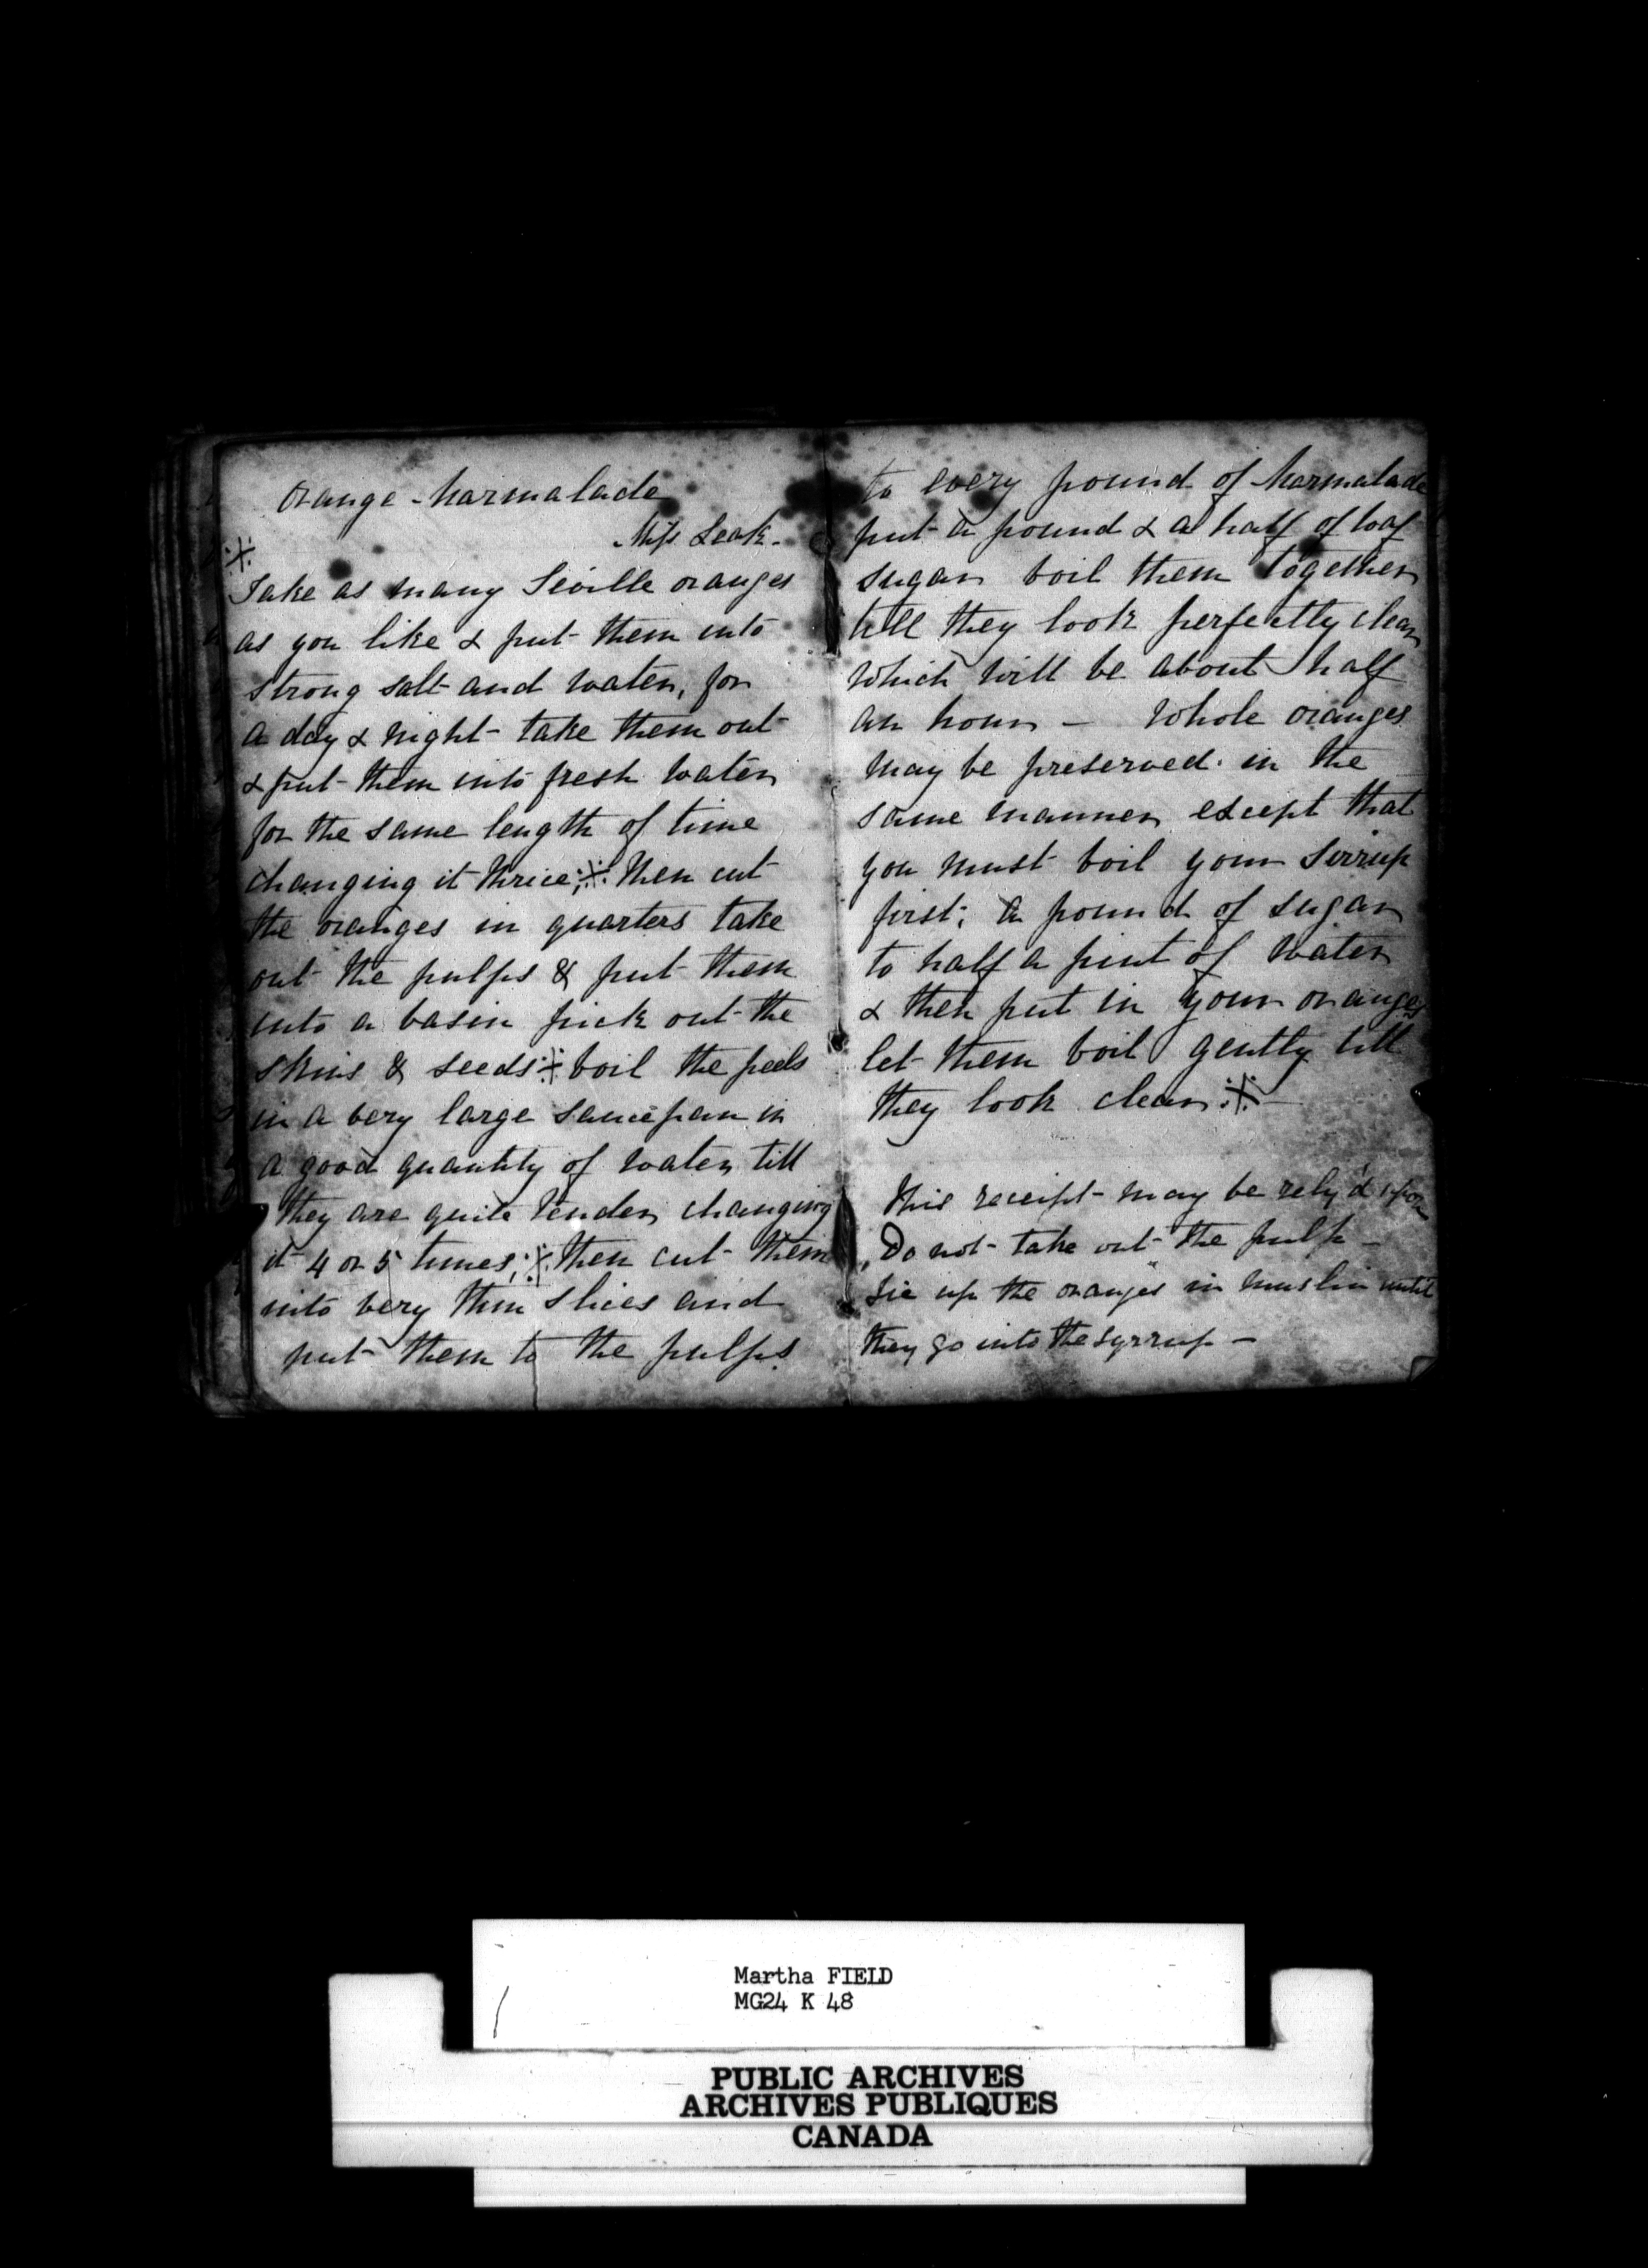 Orange Marmalade
Miss Leak.
※
Take as many Seville oranges
as you like & put them into
strong salt and water, for
a day & night - take them out
& put them into fresh water
for the same length of time
changing it thrice; ※ then cut
the oranges in quarters take
out the pulps & put them
into a basin pick out the
skins & seeds ※ boil the peels
in a very large saucepan in
a good quantity of water till
they are quite tender changing
it 4 or 5 times; ※ then cut them
into very thin slices and
put them to the pulps
to every pound of Marmalade
put a pound & a half of loaf
sugar boil them together
till they look perfectly clear
which will be about half
an hour — Whole oranges
may be preserved in the
same manner except that
you must boil your Sirrup
first; a pound of sugar
to half a pint of water
& then put in your oranges
let them boil gently till
they look clear ※ —
This receipt may be rely'd upon
Do not take out the pulp —
Tie up the oranges in muslin until
they go into the syrrup —
Martha FIELD
MG24 K 48
PUBLIC ARCHIVES
ARCHIVES PUBLIQUES
CANADA